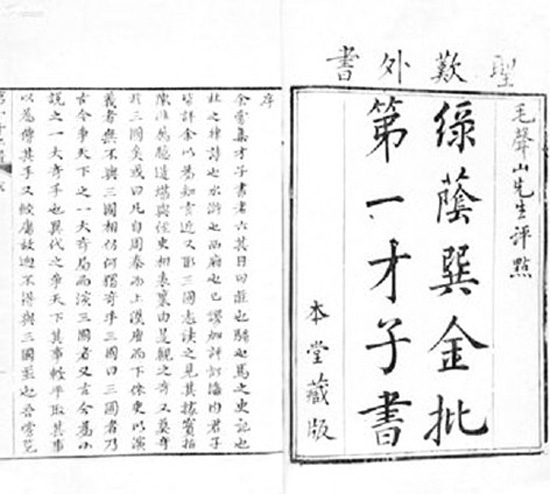 聖歎外書
毛聲山先生評點
綠蔭巽金批
第一才子書
本堂藏版
序
余嘗集才子書者六其目曰莊也騷也馬之史記也
杜之律詩也水滸也西廂也已謬加評訂海內君子
皆許余以為知言近又取三國志讀之見其據實指
陳非屬臆造堪與經史相表裏由是觀之奇又莫奇
於三國矣或曰凡自周秦而上漢唐而下依史以演
義者無不與三國相仿何獨奇乎三國曰三國者乃
古今爭天下之一大奇局而演三國者又古今為小
說之一大奇手也異代之爭天下其事較平取其事
以為傳其手又較庸故迥不得與三國並也吾嘗覽